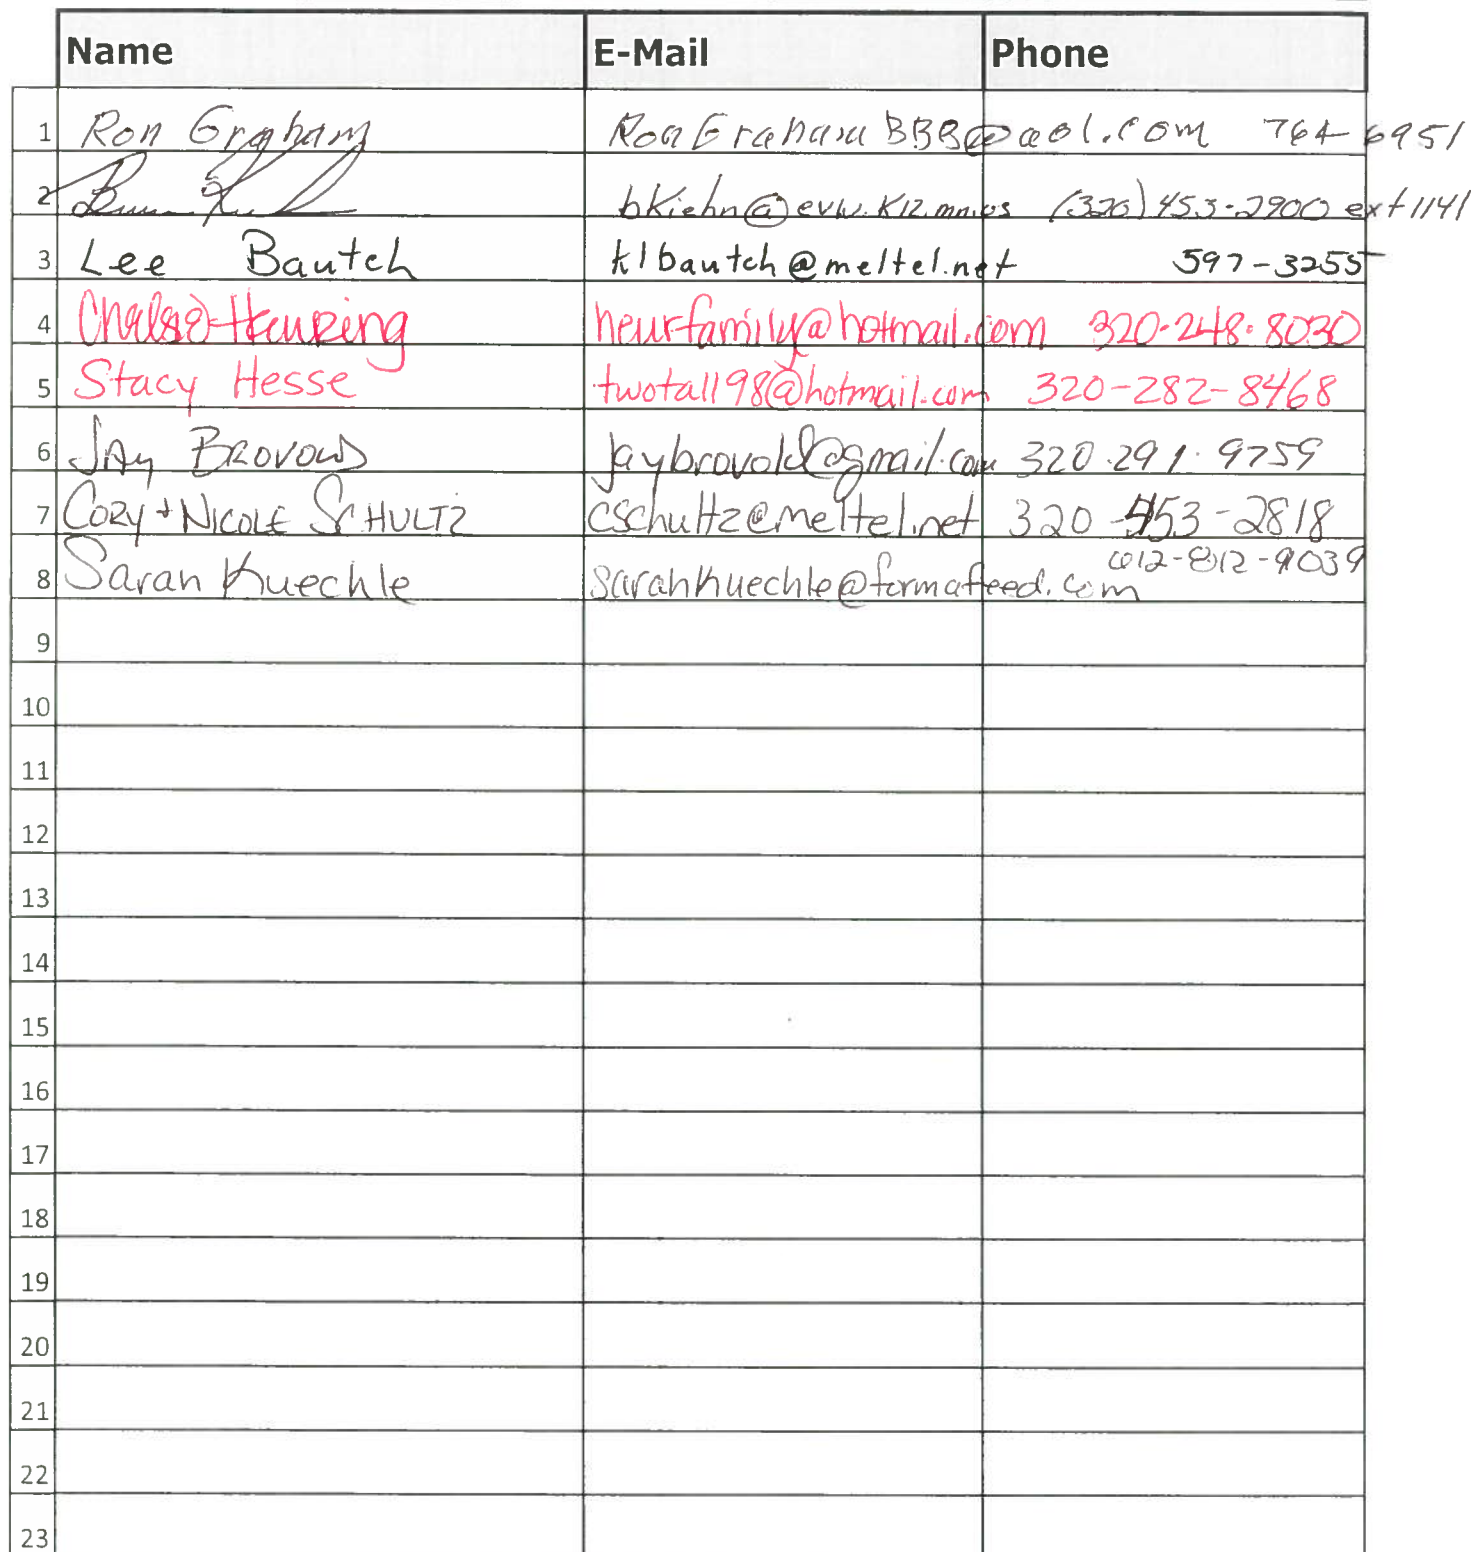 Name E-Mail Phone
1 Ron Graham RonGrahamBBB@aol.com 764-6951
2 bkiehn@evw.k12.mn.us (320) 453-2900 ext 1141
3 Lee Bautch klbautch@meltel.net 597-3255
4 Heuring heurfamily@hotmail.com 320-248-8030
5 Stacy Hesse twotall98@hotmail.com 320-282-8468
6 Jay Brovold jaybrovold@gmail.com 320.291.9759
7 Cory + Nicole Schultz cschultz@meltel.net 320-453-2818
612-812-9039
8 Sarah Kuechle sarahkuechle@formafeed.com
9
10
11
12
13
14
15
16
17
18
19
20
21
22
23